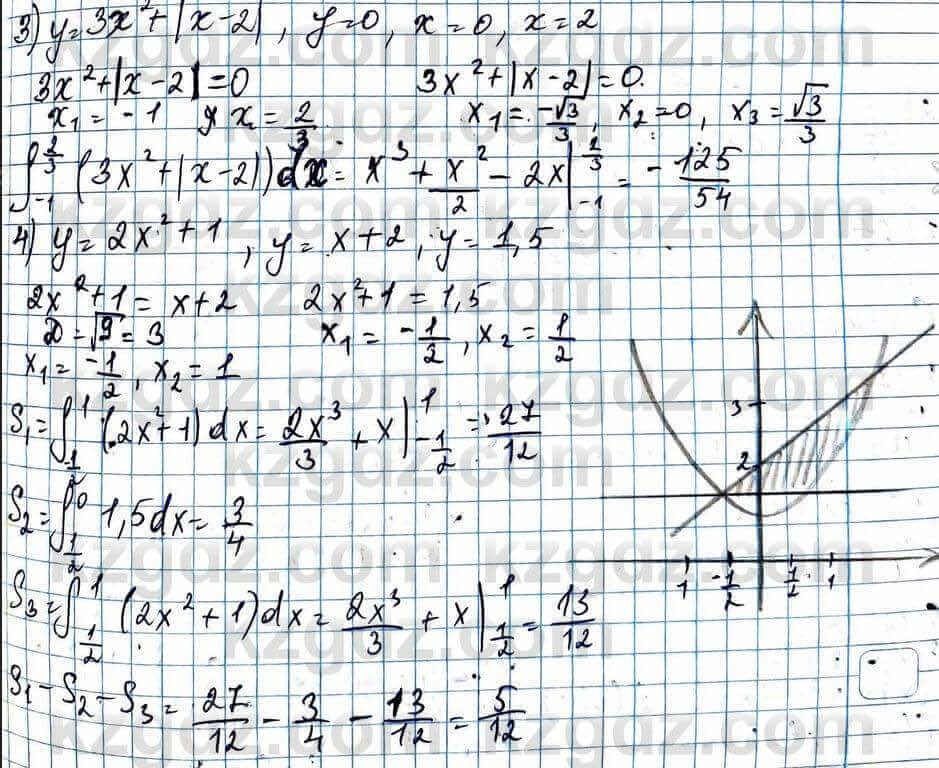 3) y=3x²+|x-2|, y=0, x=0, x=2
3x²+|x-2|=0    3x²+|x-2|=0.
x₁=-1  у x=2/3    x₁=-√3/3, x₂=0, x₃=√3/3
∫₋₁^(2/3) (3x²+|x-2|)dx = x³+x²/2-2x|₋₁^(2/3) = -125/54
4) y=2x²+1, y=x+2, y=1,5
2x²+1=x+2    2x²+1=1,5
D=√9=3    x₁=-1/2, x₂=1/2
x₁=-1/2, x₂=1
S₁=∫_(1/2)^1 (2x²+1)dx=2x³/3+x|_(-1/2)^1=27/12
S₂=∫_(1/2)^0 1,5dx=3/4
S₃=∫_(1/2)^1 (2x²+1)dx=2x³/3+x|_(1/2)^1=13/12
S₁-S₂-S₃=27/12-3/4-13/12=5/12
3
2
1  -1/2  1/2  1
kzgdz.com